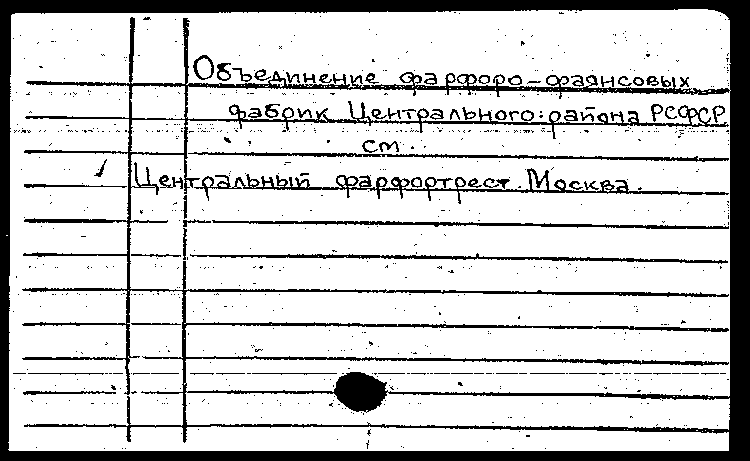 Объединение фарфоро-фаянсовых
фабрик Центрального района РСФСР
см.
Центральный фарфортрест. Москва.